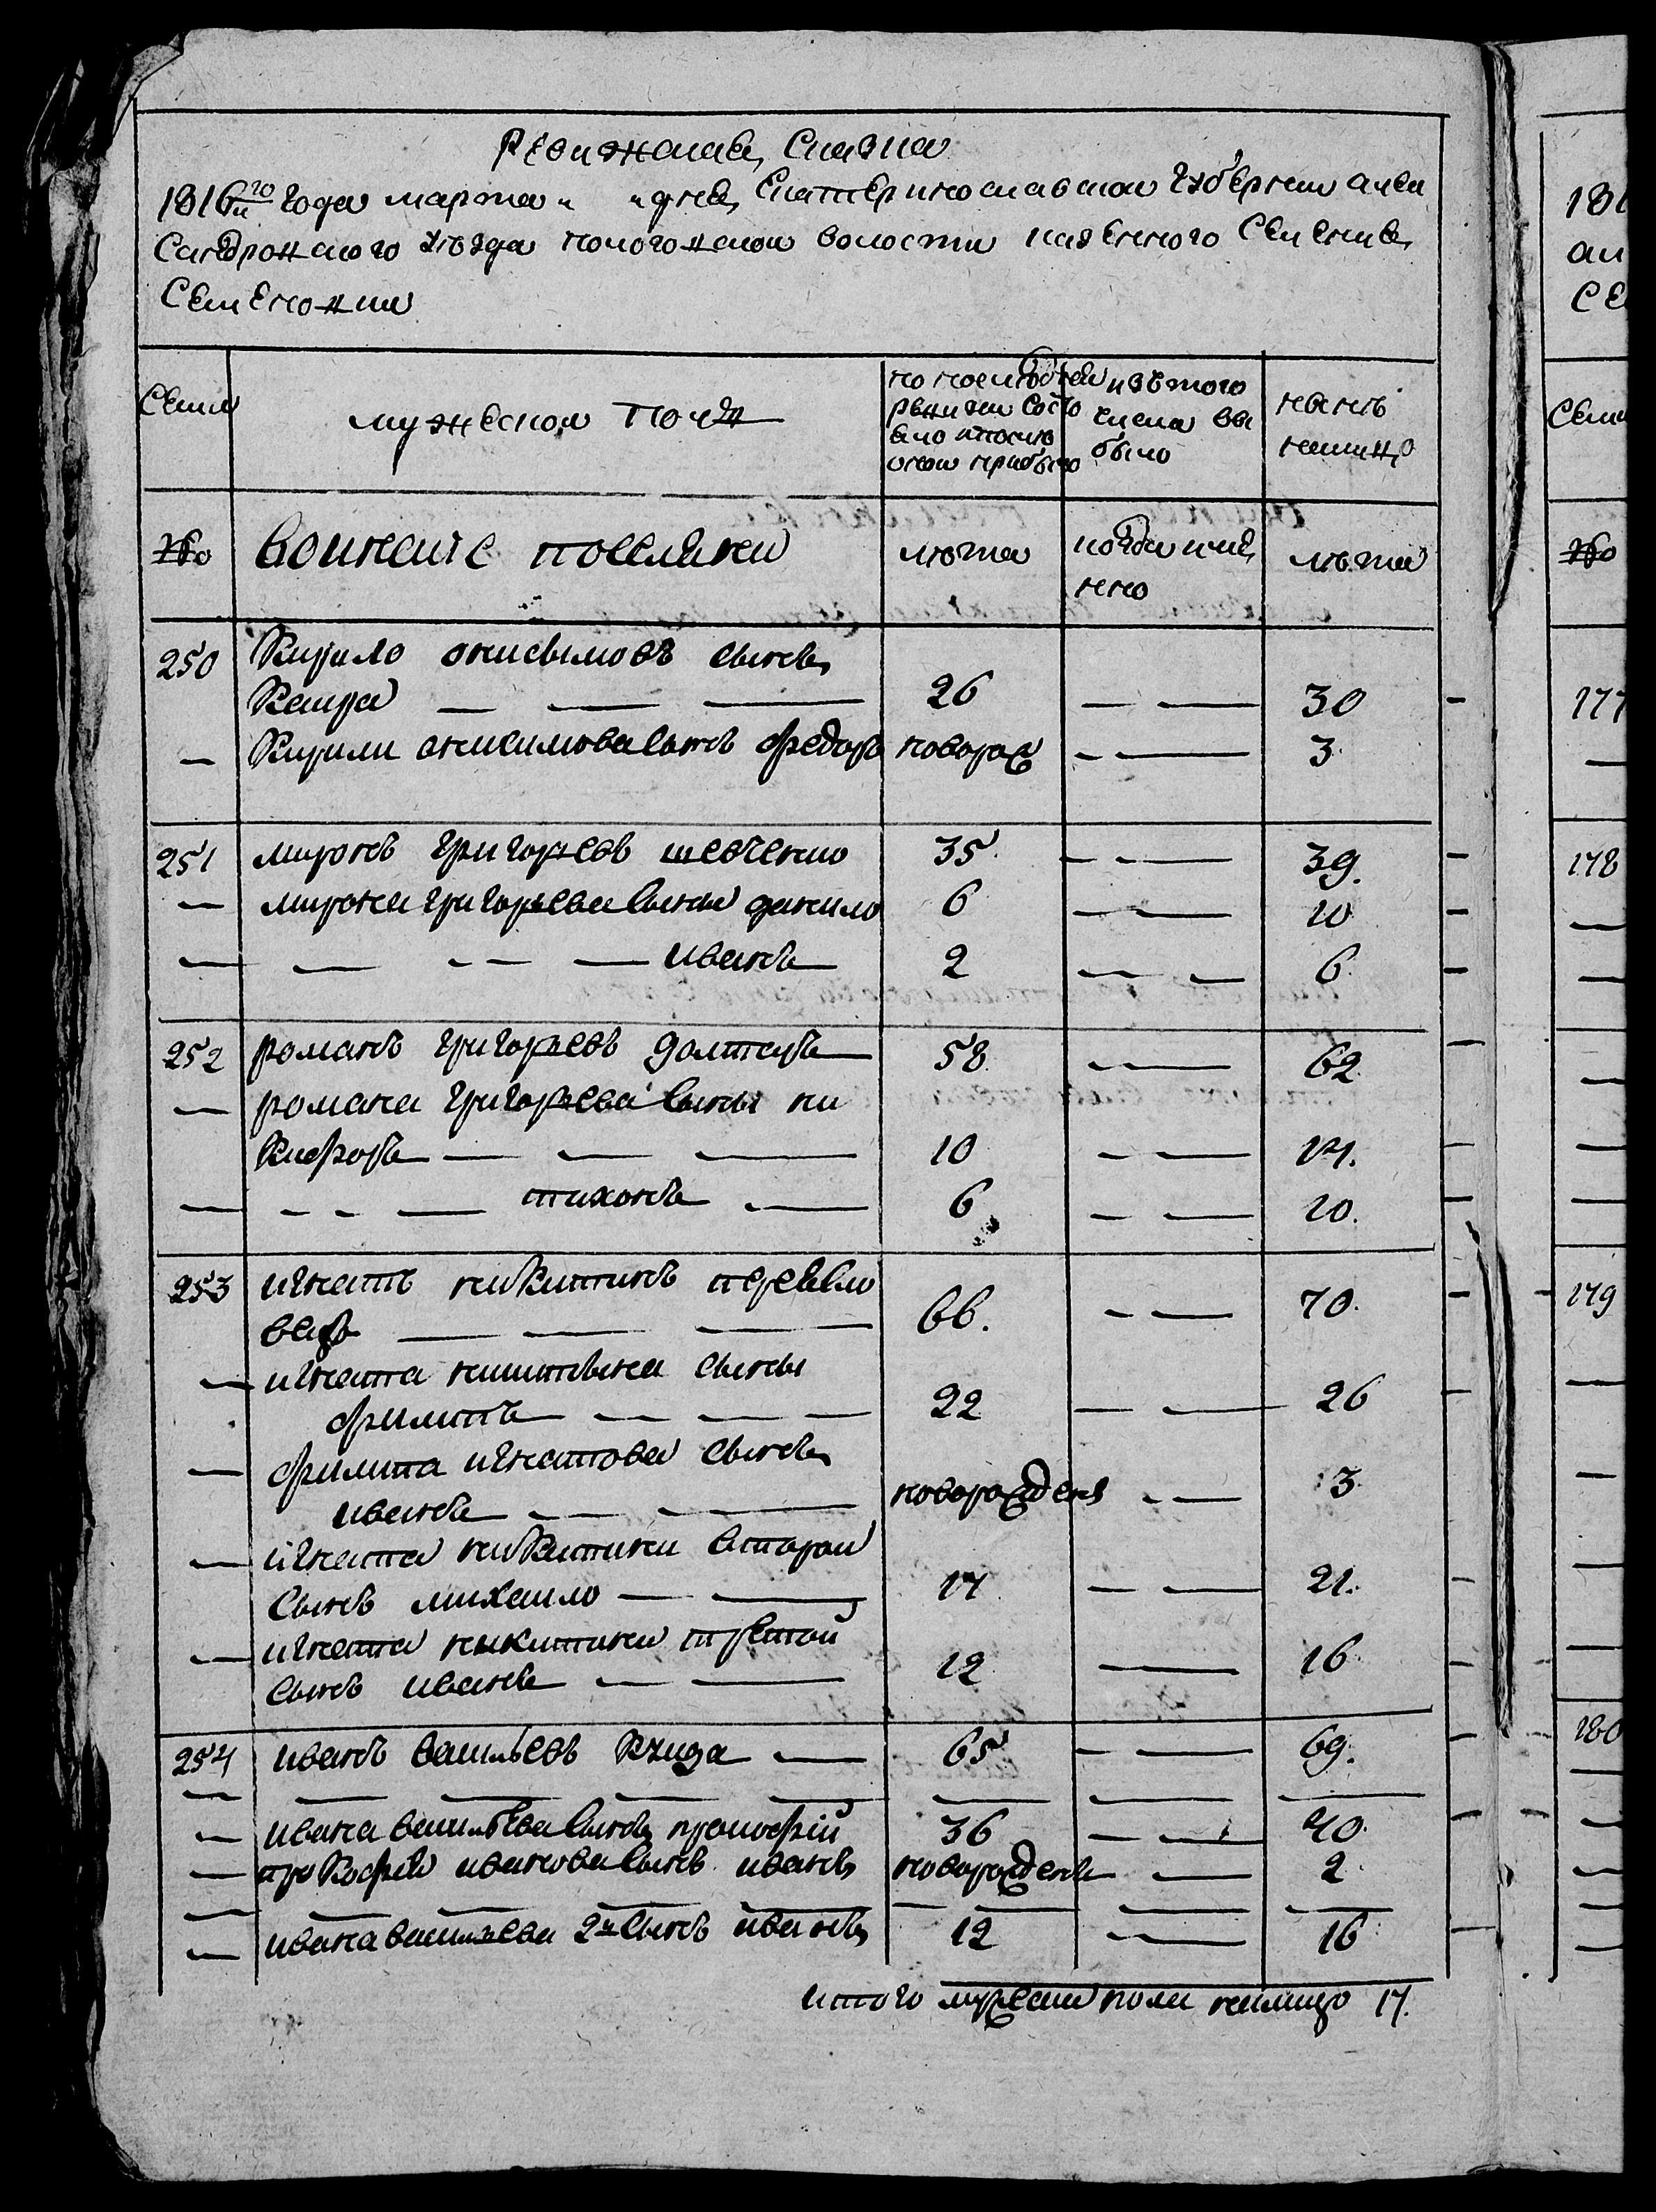 Ревижская Сказка
1816го года марта " " дня Екатеринославской губернии алек
сандровского уезда пологовской волости казенного селения
Семеновки
Семьи
мужеской Полъ
по последней ревизии состояло и после оной прибыло
изъ того числа выбыло
ныне налицо
№
воинские поселяне
лета
когда именно
лета
250 Кирило онисымовъ сынъ
Каира — — — 26 — — 30
— Кирили онисимова сынъ федоръ новорож — — 3
251 миронъ григорьевъ шевченко 35 — — 39.
— мирона григорьева сыны данило 6 — — 10
— — — — иванъ — 2 — — 6.
252 романъ григорьевъ — 58 — — 62
— романа григорьева сыны ни
Кифоръ — — — 10 — — 14.
— — — — тихонъ — 6 — — 10.
253 игнатъ никитинъ
— — — — 66. — — 70.
— игната никитына сыны
филипъ — — — 22 — — 26
— филипа игнатова сынъ
иванъ — — — новорожденъ — — 3
— игната никитина второй
сынъ михайло — — 17 — — 21.
— игната никитина третой
сынъ иванъ — — 12 — 16
254 иванъ васильевъ — 65 — — 69.
— — — — — — — —
— ивана васильева сынъ прокофiй 36 — — 40.
— прокофия иванова сынъ иванъ новорожденъ — — 2
— — — — — — — —
— ивана васильева 2й сынъ иванъ 12 — — 16
итого мужеска пола налицо 17.
181
ал
се
Семьи
№
177
—
178
—
—
—
—
—
—
179
—
—
—
—
180
—
—
—
—
—